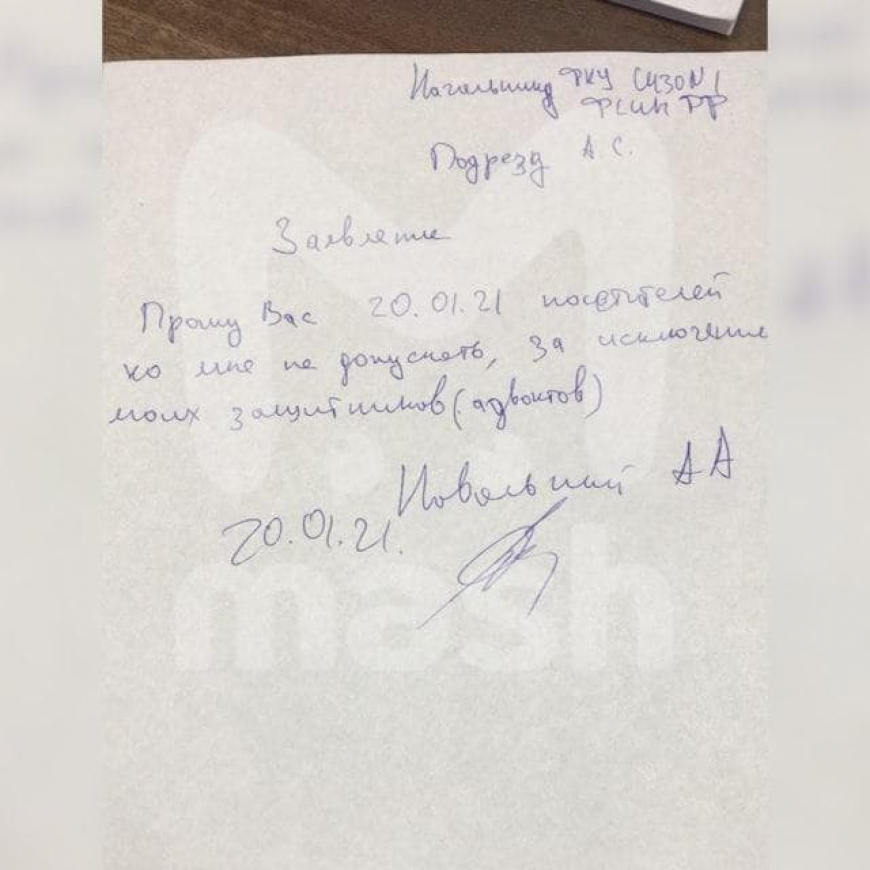 Начальнику ФКУ СИЗО N1
ФСИН РФ
Подрезу А С.
Заявление
Прошу Вас 20.01.21 посетителей
ко мне не допускать, за исключение
моих защитников (адвоктов)
Навальный А А
20.01.21.
mash